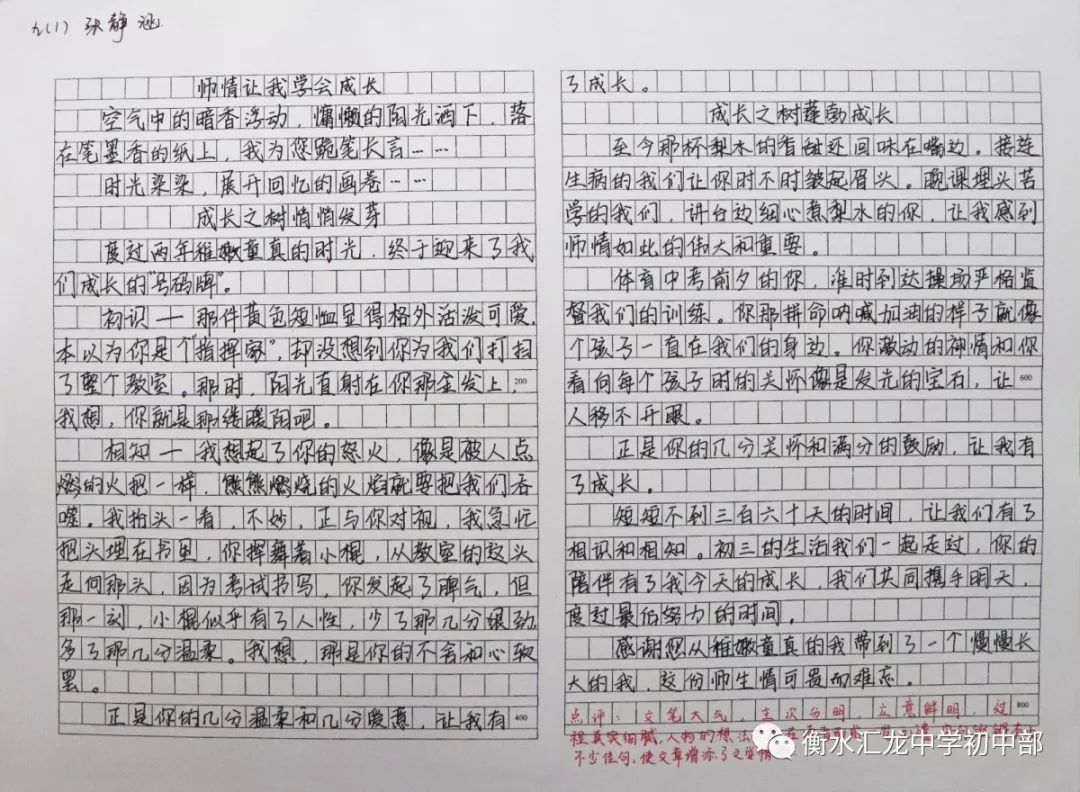 九(1) 张静涵
师情让我学会成长
空气中的暗香浮动，慵懒的阳光洒下，落
在笔墨香的纸上，我为您跪笔长言……
时光染染，展开回忆的画卷……
成长之树悄悄发芽
度过两年稚嫩童真的时光，终于迎来了我
们成长的"号码牌"。
初识一那件黄色短恤显得格外活泼可爱，
本以为你是个"指挥家"，却没想到你为我们打扫
了整个教室。那时，阳光直射在你那金发上，200
我想，你就是那缕暖阳吧。
相知一我想起了你的怒火，像是被人点
燃的火把一样，熊熊燃烧的火焰就要把我们吞
噬。我抬头一看，不妙，正与你对视，我急忙
把头埋在书里，你挥舞着小棍，从教室的这头
走向那头，因为考试书写，你发起了脾气，但
那一刻，小棍似乎有了人性，少了那几分狠劲
多了那几分温柔。我想，那是你的不舍和心软
罢。
正是你的几分温柔和几分爱意，让我有400
了成长。
成长之树蓬勃成长
至今那杯梨水的香甜还回味在嘴边。接连
生病的我们让你时不时皱起眉头。晚课埋头苦
学的我们，讲台边细心煮梨水的你，让我感到
师情如此的伟大和重要。
体育中考前夕的你，准时到达操场严格监
督我们的训练。你那拼命呐喊加油的样子就像
个孩子一直在我们的身边。你激动的神情和你
看向每个孩子时的关怀像是发光的宝石，让600
人移不开眼。
正是你的几分关怀和满分的鼓励，让我有
了成长。
短短不到三百六十天的时间，让我们有了
相识和相知。初三的生活我们一起走过，你的
陪伴有了我今天的成长，我们共同携手明天，
度过最后努力的时间。
感谢您从稚嫩童真的我带到了一个慢慢长
大的我，这份师生情可贵而难忘。
800
点评：文笔大气，主次分明，立意鲜明，过
程真实细腻，人物的想法
不少佳句，使文章增添了文学情
衡水汇龙中学初中部